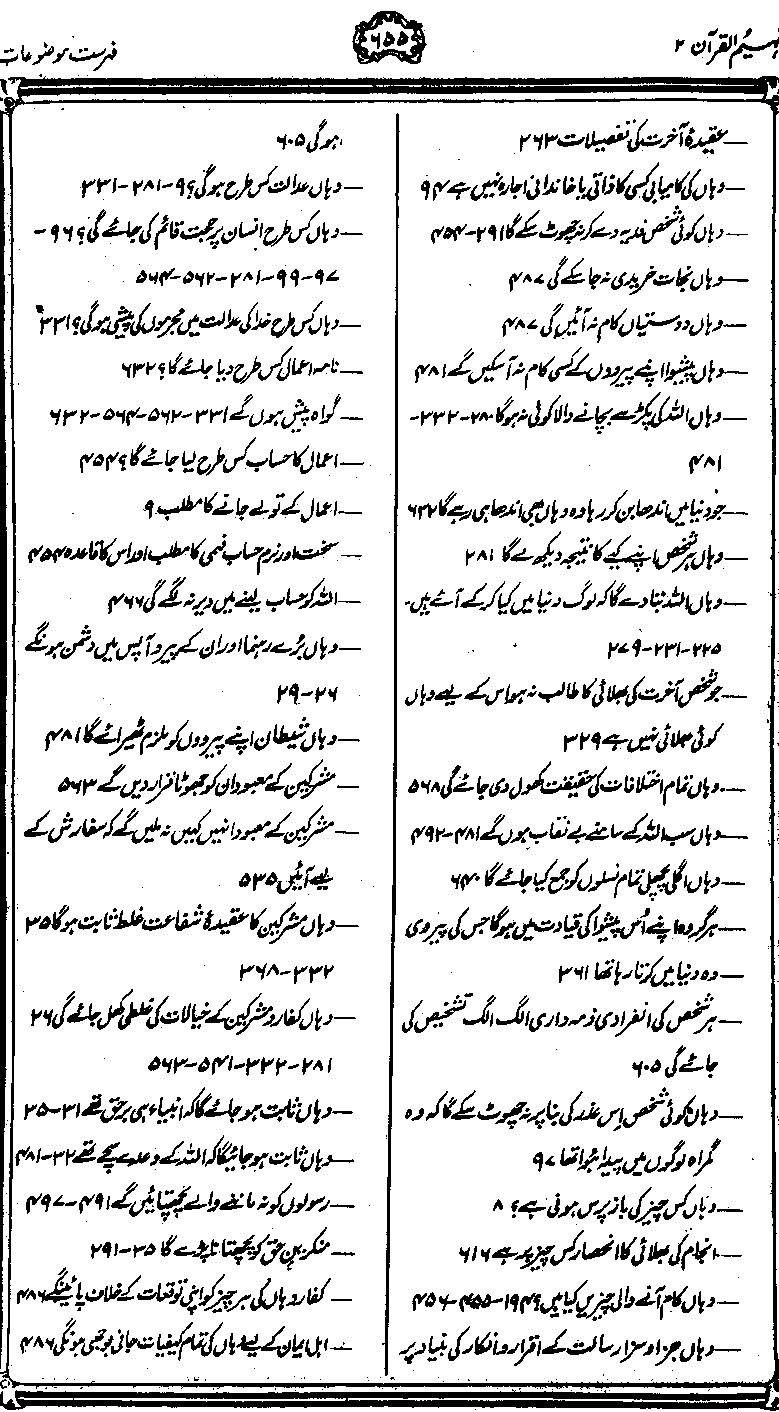 تفہیم القرآن ۲
۶۵۵
فہرست موضوعات
— عقیدۂ آخرت کی تفصیلات ۲۶۳
— وہاں کی کامیابی کسی کا ذاتی یا خاندانی اجارہ نہیں ہے ۹۴
— وہاں کوئی شخص فدیہ دے کر نہ چھوٹ سکے گا ۲۹۱-۴۵۴
— وہاں نجات خریدی نہ جا سکے گی ۴۸۷
— وہاں دوستیاں کام نہ آئیں گی ۴۸۷
— وہاں پیشوا اپنے پیرووں کے کسی کام نہ آسکیں گے ۴۸۱
— وہاں اللہ کی پکڑ سے بچانے والا کوئی نہ ہوگا ۲۸۰-۳۳۲-
۴۸۱
— جو دنیا میں اندھا بن کر رہا وہ وہاں بھی اندھا ہی رہے گا ۶۳۲
— وہاں ہر شخص اپنے کیے کا نتیجہ دیکھ لے گا ۲۸۱
— وہاں اللہ بتا دے گا کہ لوگ دنیا میں کیا کرکے آئے ہیں۔
۲۲۵-۲۳۱-۲۷۹
— جو شخص آخرت کی بھلائی کا طالب نہ ہو اس کے لیے وہاں
کوئی بھلائی نہیں ہے ۳۲۹
— وہاں تمام اختلافات کی حقیقت کھول دی جائے گی ۵۶۸
— وہاں سب اللہ کے سامنے بے نقاب ہوں گے ۴۸۱-۴۹۲
— وہاں اگلی پچھلی تمام نسلوں کو جمع کیا جائے گا ۶۴۰
— ہر گروہ اپنے اُس پیشوا کی قیادت میں ہوگا جس کی پیروی
— وہ دنیا میں کرتا رہا تھا ۳۶۱
— ہر شخص کی انفرادی ذمہ داری الگ الگ تشخیص کی
جائے گی ۶۰۵
— وہاں کوئی شخص اِس عذر کی بنا پر نہ چھوٹ سکے گا کہ وہ
گمراہ لوگوں میں پیدا ہوا تھا ۹۷
— وہاں کس چیز کی باز پرس ہونی ہے؟ ۸
— انجام کی بھلائی کا انحصار کس چیز پر ہے ۶۱۶
— وہاں کام آنے والی چیزیں کیا ہیں ۱۹۴؟-۴۵۵-۴۵۶
— وہاں جزا و سزا رسالت کے اقرار و انکار کی بنیاد پر
ہوگی ۶۰۵
— وہاں عدالت کس طرح ہوگی؟ ۹-۲۸۱-۳۳۱
— وہاں کس طرح انسان پر حجت قائم کی جائے گی؟ ۹۶-
۹۷-۹۹-۲۸۱-۵۶۲-۵۶۴
— وہاں کس طرح خدا کی عدالت میں مجرموں کی پیشی ہوگی؟ ۳۳۱
— نامہ اعمال کس طرح دیا جائے گا؟ ۶۳۲
— گواہ پیش ہوں گے ۳۳۱-۵۶۲-۵۶۴-۶۳۲
— اعمال کا حساب کس طرح لیا جائے گا؟ ۴۵۴
— اعمال کے تولے جانے کا مطلب ۹
— سخت اور نرم حساب فہمی کا مطلب اور اس کا قاعدہ ۴۵۴
— اللہ کو حساب لینے میں دیر نہ لگے گی ۴۶۶
— وہاں بڑے رہنما اور ان کے پیرو آپس میں دشمن ہونگے
۲۶-۲۹
— وہاں شیطان اپنے پیرووں کو ملزم ٹھیرائے گا ۴۸۱
— مشرکین کے معبود ان کو جھوٹا قرار دیں گے ۵۶۳
— مشرکین کے معبود انہیں کہیں نہ ملیں گے کہ سفارش کے
لیے آئیں ۵۳۵
— وہاں مشرکین کا عقیدۂ شفاعت غلط ثابت ہوگا ۳۵
۳۳۲-۳۶۸
— وہاں کفار و مشرکین کے خیالات کی غلطی کھل جائے گی ۲۶
۲۸۱-۳۳۲-۵۴۱-۵۶۳
— وہاں ثابت ہو جائے گا کہ انبیاء ہی برحق تھے ۳۱-۳۵
— وہاں ثابت ہو جائیگا کہ اللہ کے وعدے سچے تھے ۳۲-۴۸۱
— رسولوں کو نہ ماننے والے پچھتائیں گے ۴۹۱-۴۹۷
— منکرین حق کو پچھتانا پڑے گا ۳۵-۲۹۱
— کفار وہاں کی ہر چیز کو اپنی توقعات کے خلاف پائینگے ۴۸۶
— اہل ایمان کے لیے وہاں کی تمام کیفیات جانی بوجھی ہونگی ۴۸۶